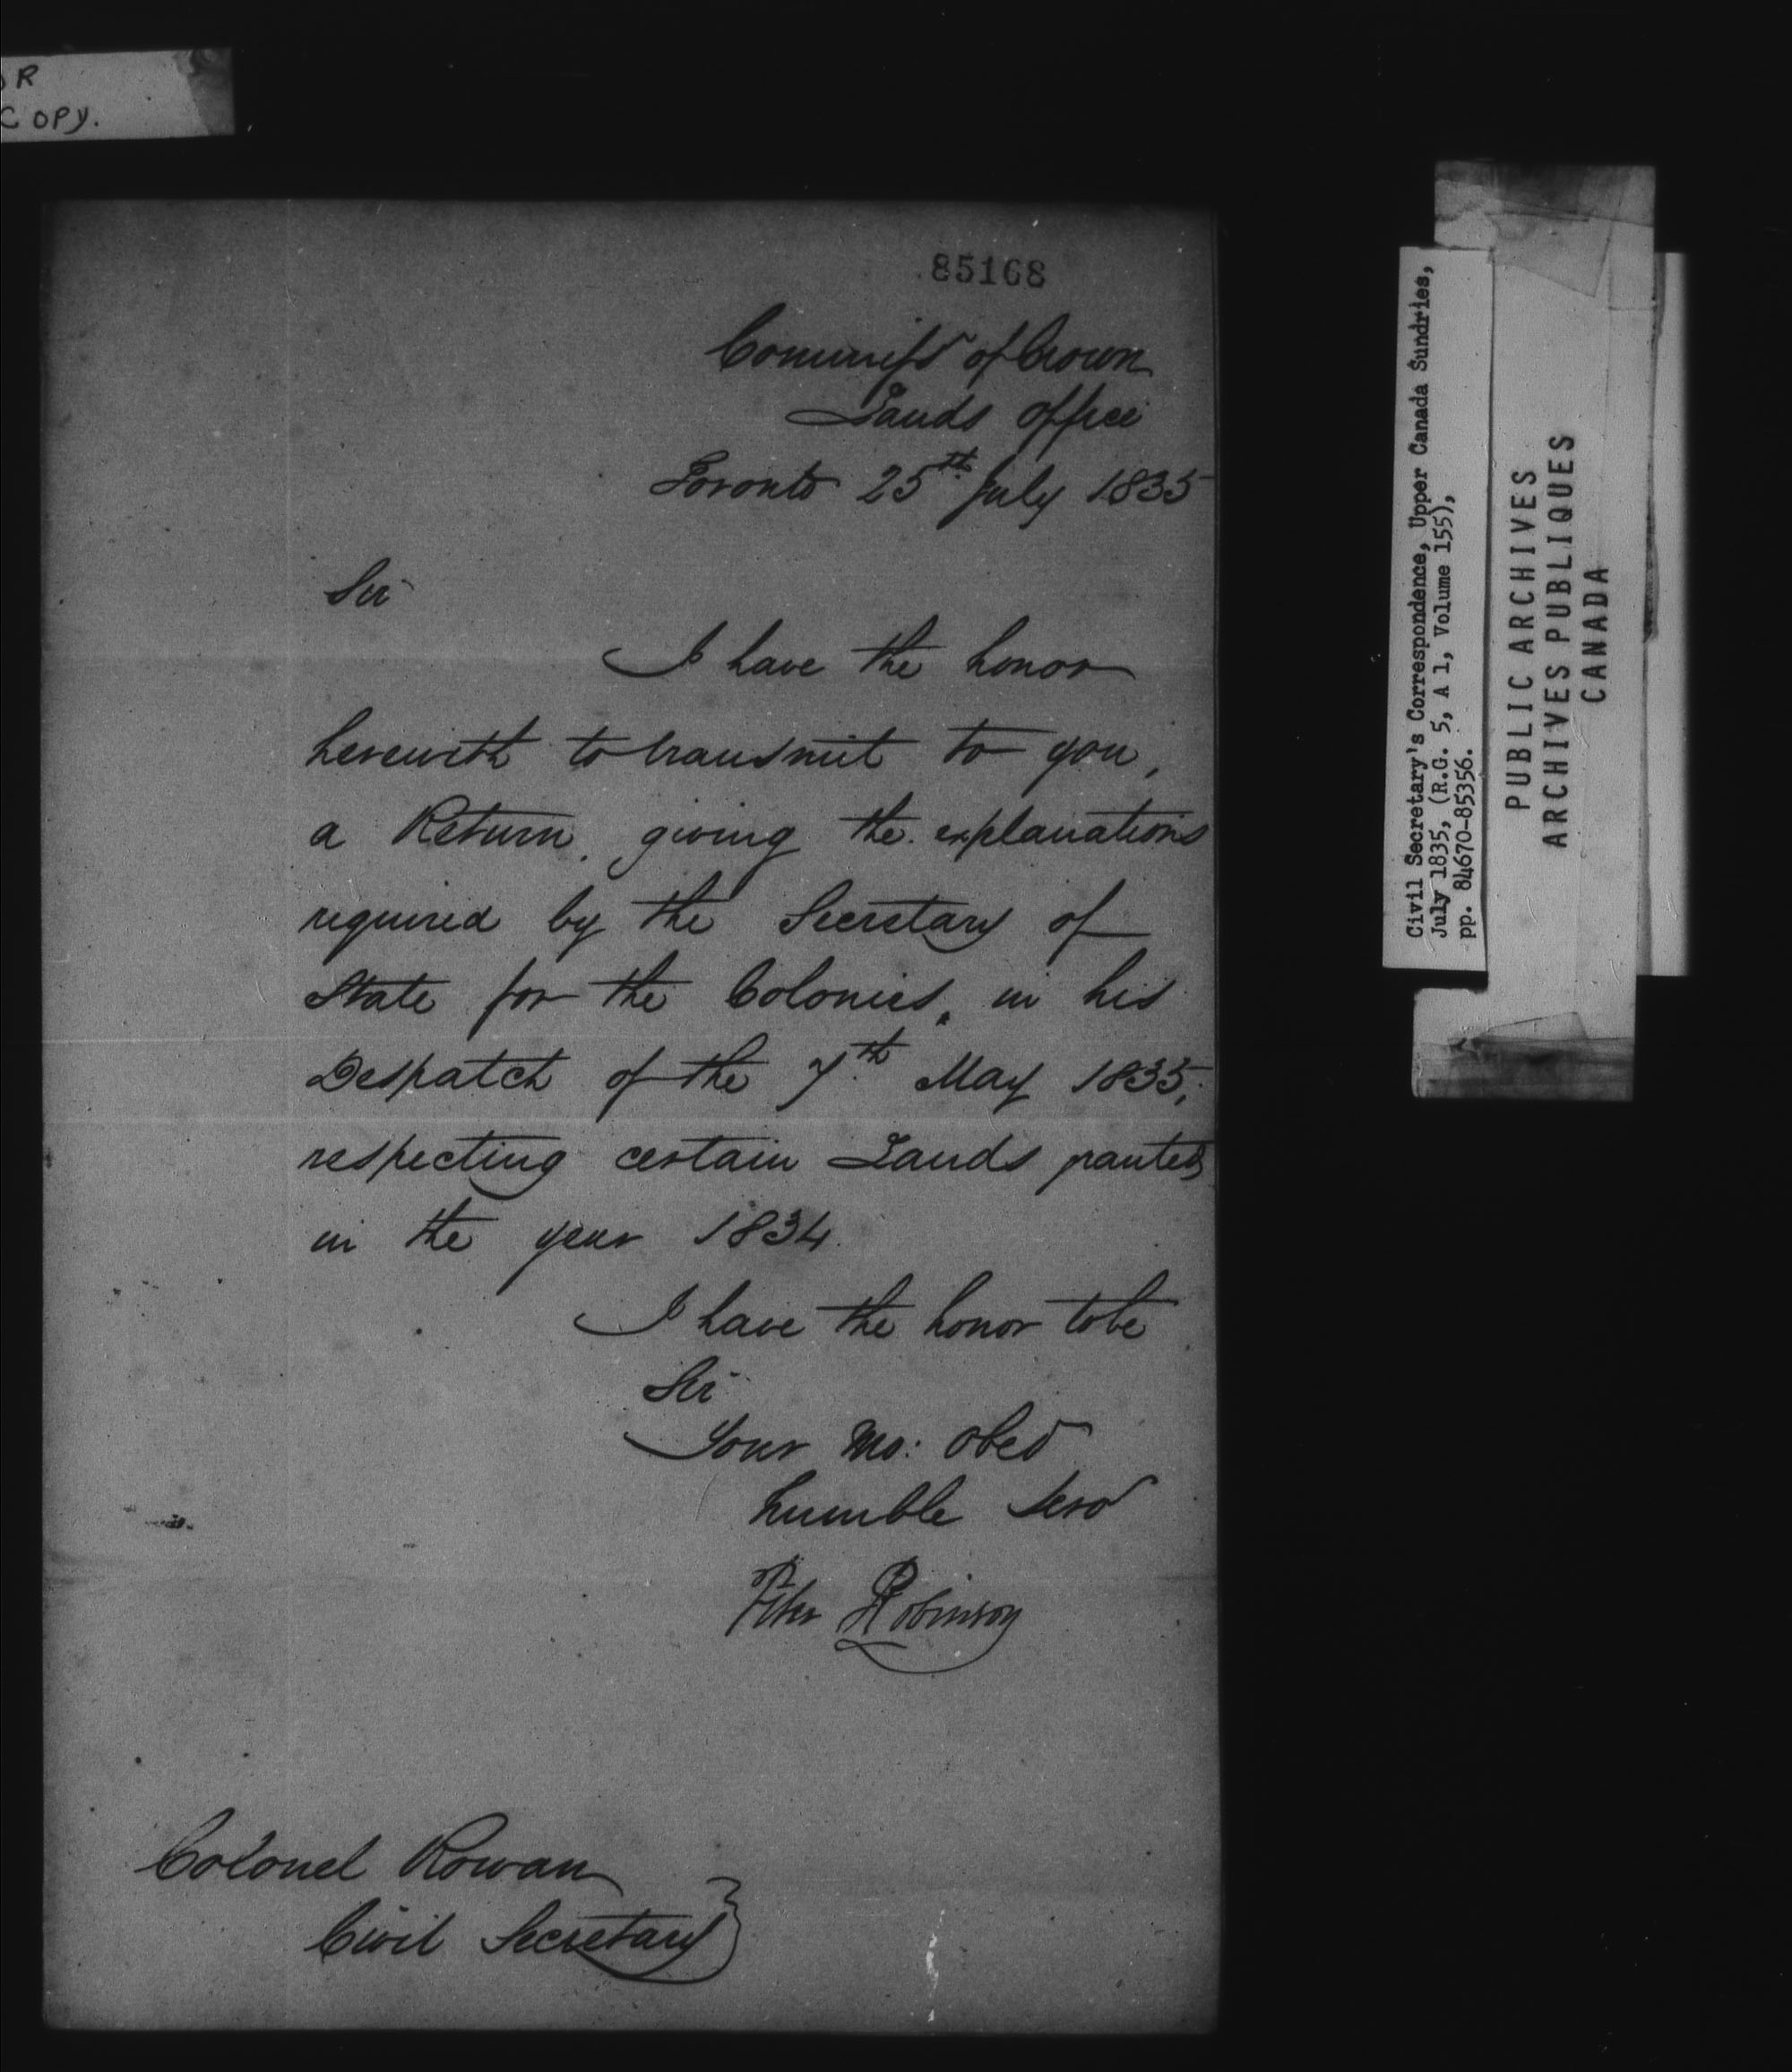 R
COPY.
85168
Commissr of Crown
Lands Office
Toronto 25th July 1835
Sir
I have the honor
herewith to transmit to you,
a Return, giving the explanations
required by the Secretary of
State for the Colonies, in his
Despatch of the 7th May 1835,
respecting certain Lands granted
in the year 1834.
I have the honor to be
Sir
Your Mo: Obed
humble Serv
Peter Robinson
Colonel Rowan
Civil Secretary
Civil Secretary's Correspondence, Upper Canada Sundries,
July 1835, (R.G. 5, A 1, Volume 155),
pp. 84670-85356.
PUBLIC ARCHIVES
ARCHIVES PUBLIQUES
CANADA